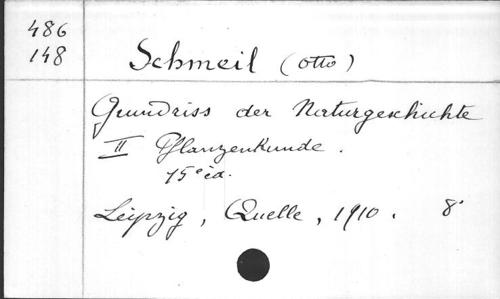 486
148
Schmeil (Otto)
Grundriss der Naturgeschichte
II Pflanzenkunde.
15e éd.
Leipzig, Quelle, 1910. 8°